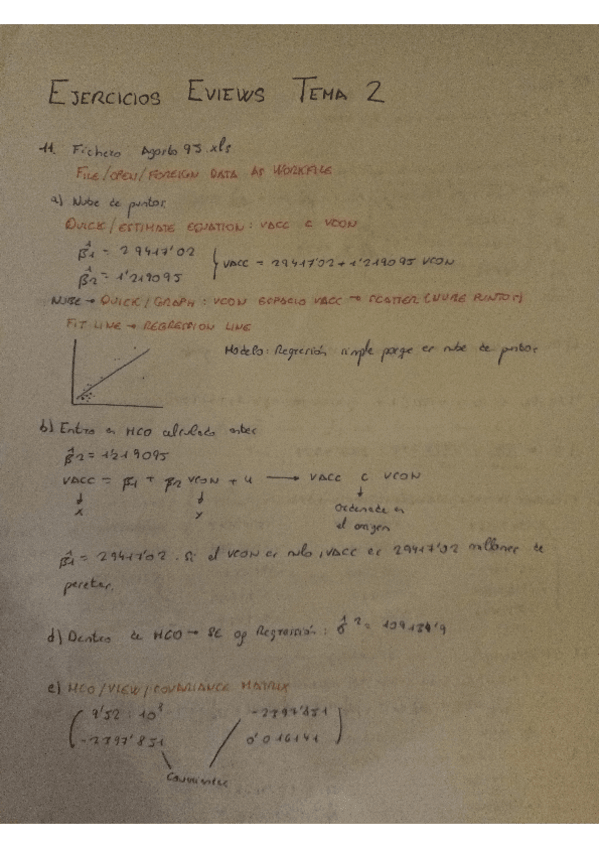 EJERCICIOS EVIEWS TEMA 2
11. Fichero: Agosto 95.xls
FILE/OPEN/FOREIGN DATA AS WORKFILE
a) Nube de puntos
QUICK/ESTIMATE EQUATION: VACC C VCON
β̂1 = 29417'02
β̂2 = 1'219095
VACC = 29417'02 + 1'219095 VCON
NUBE → QUICK/GRAPH: VCON ESPACIO VACC → SCATTER (NUBE PUNTOS)
FIT LINE → REGRESSION LINE
Modelo: Regresión simple porqe es nube de puntos
b) Entro en MCO calculado antes
β̂2 = 1'219095
VACC = β1 + β2 VCON + u → VACC C VCON
↓ ↓ ↓
x y Ordenada en
el origen
β̂1 = 29417'02. Si el VCON es nulo, VACC es 29417'02 millones de
pesetas.
d) Dentro de MCO → SE of Regressión: σ̂² =
e) MCO/VIEW/COVARIANCE MATRIX
9'52 · 10⁸ -2397'851
-2397'851 0'016141
Covarianzas